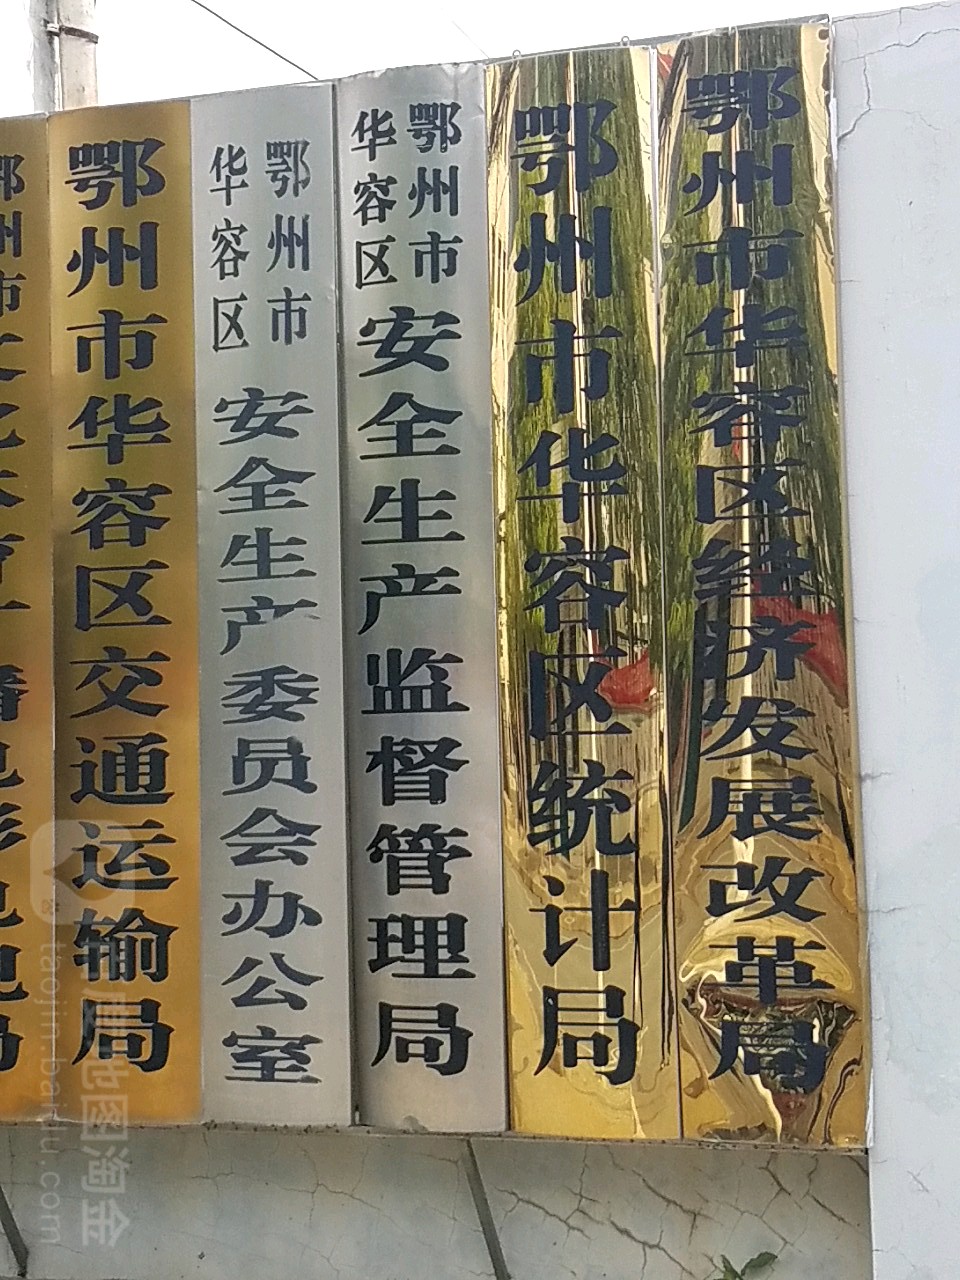 鄂州市华容区经济发展改革局
鄂州市华容区统计局
鄂州市
华容区
安全生产监督管理局
鄂州市
华容区
安全生产委员会办公室
鄂州市华容区交通运输局
百度地图淘金
taojin.baidu.com